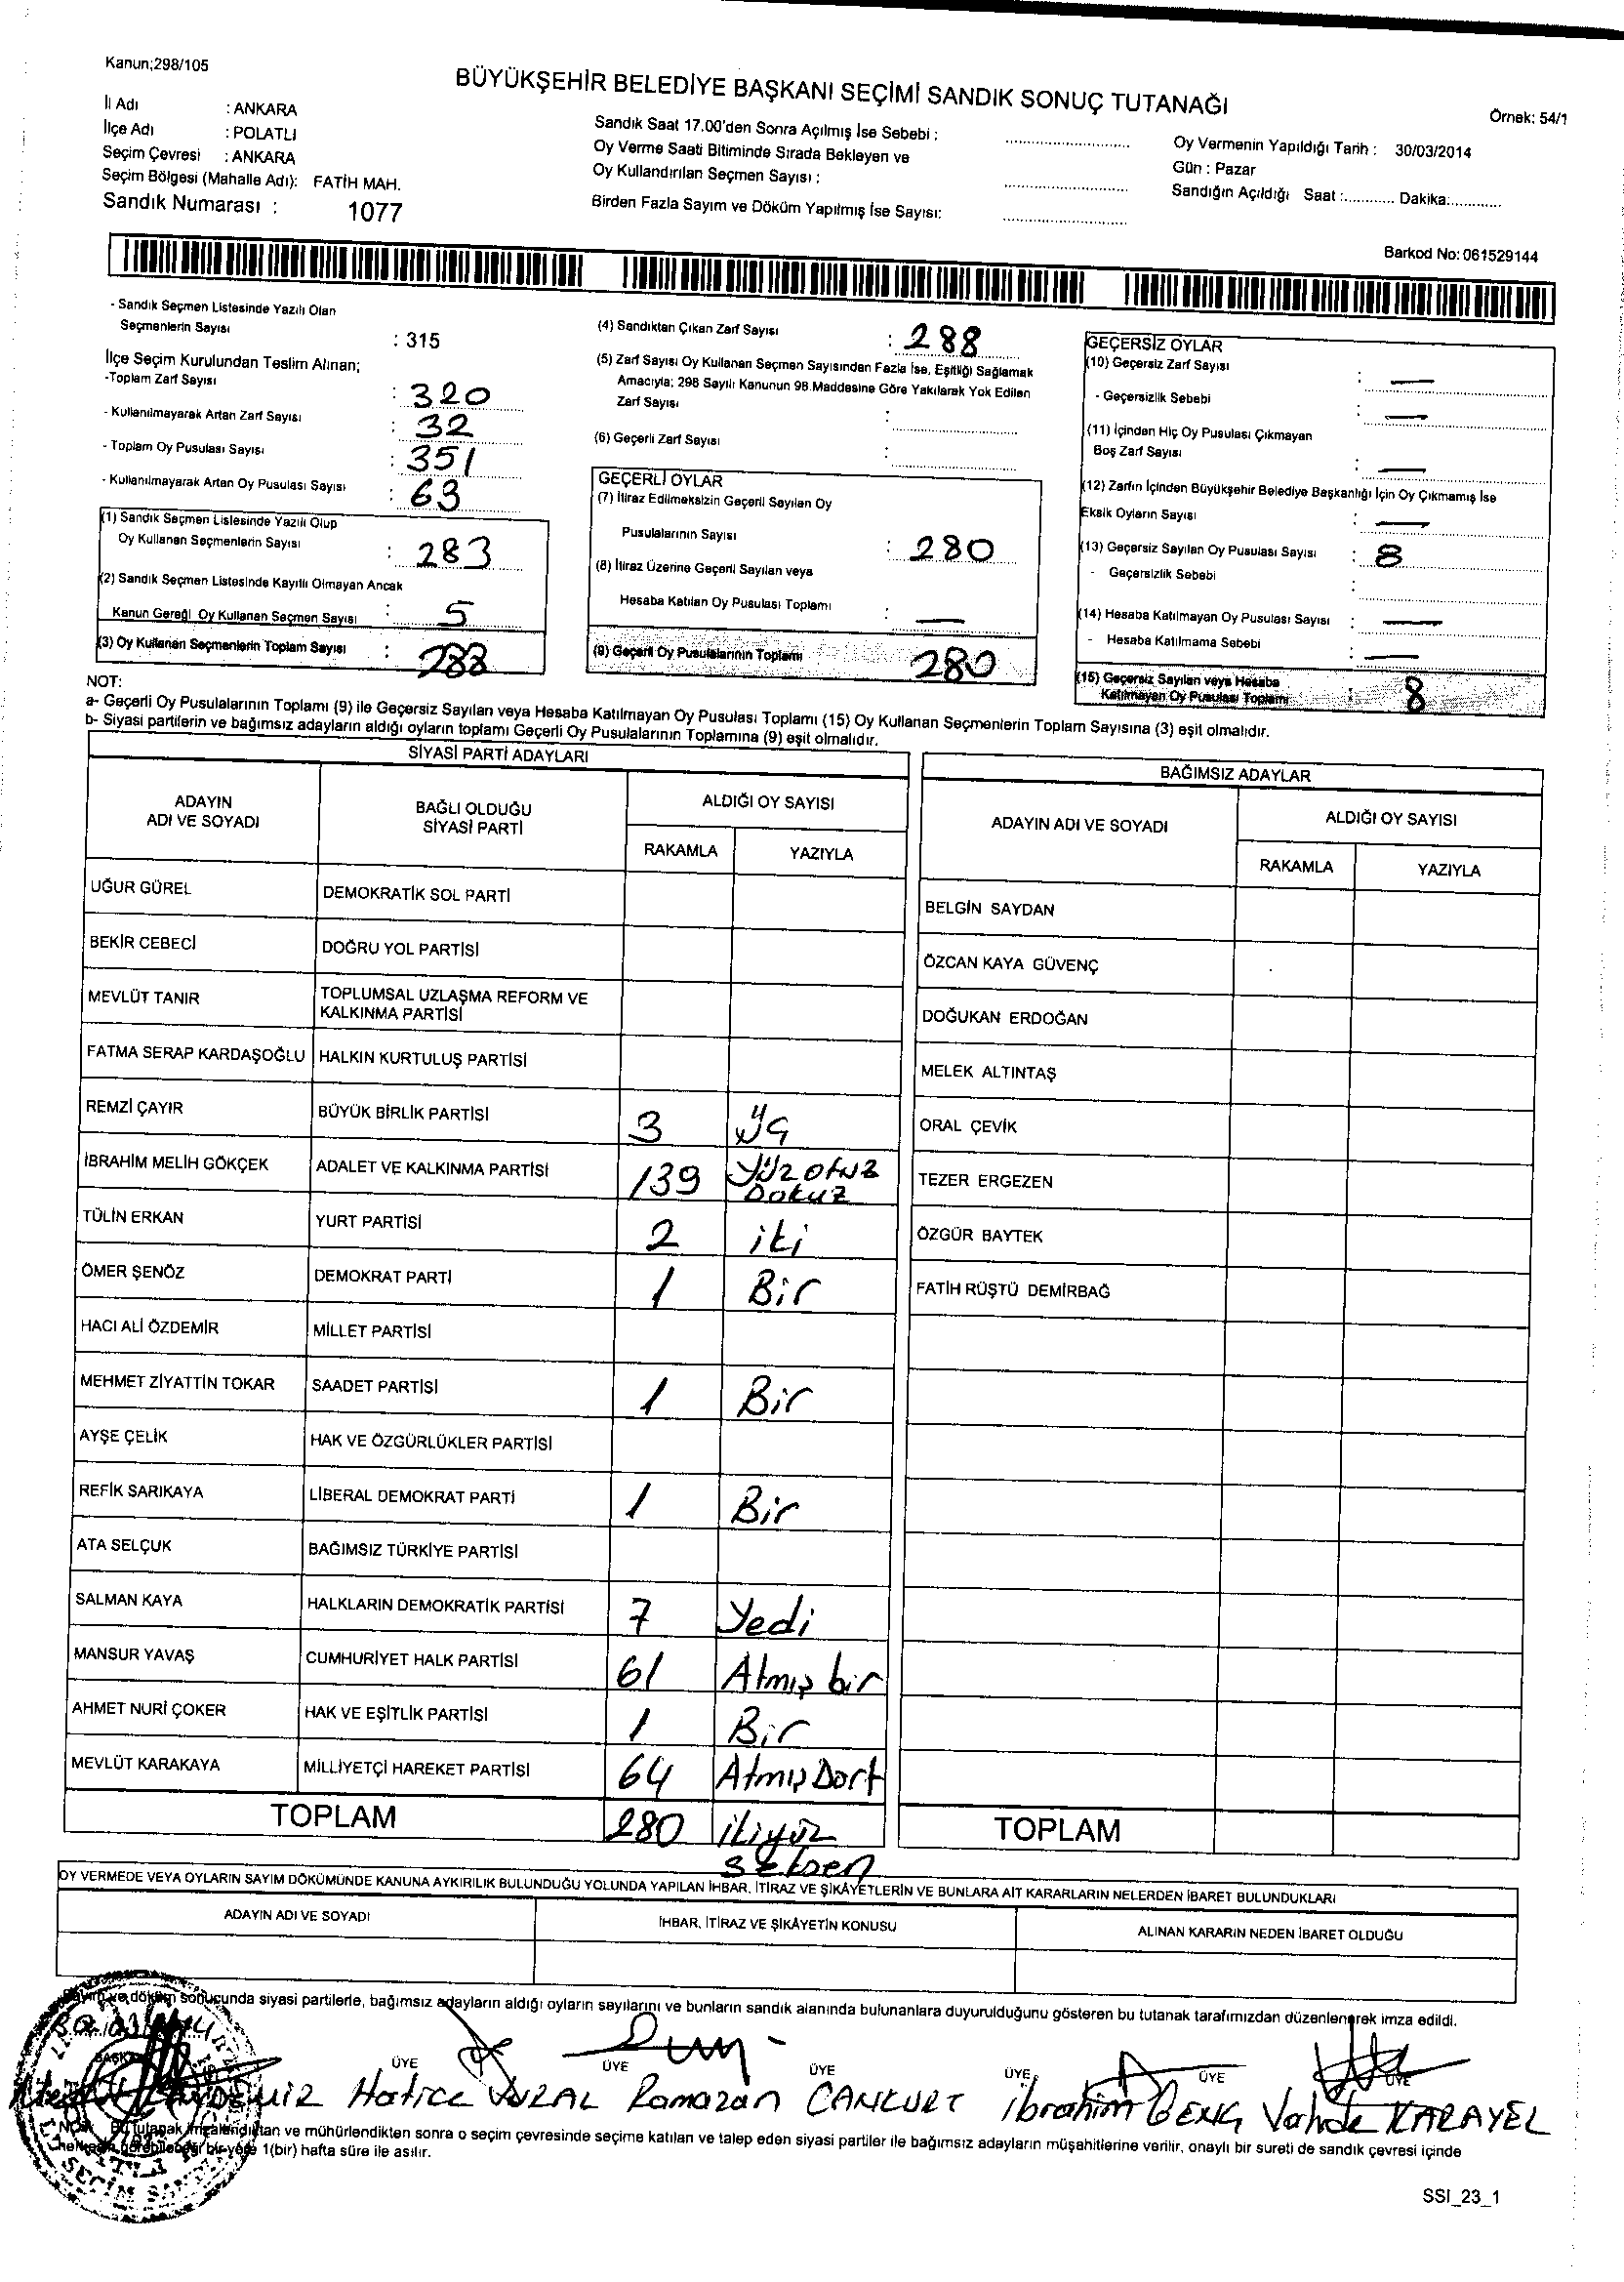 Kanun;298/105
BÜYÜKŞEHİR BELEDİYE BAŞKANI SEÇİMİ SANDIK SONUÇ TUTANAĞI
Örnek: 54/1
İl Adı : ANKARA
İlçe Adı : POLATLI
Seçim Çevresi : ANKARA
Seçim Bölgesi (Mahalle Adı): FATİH MAH.
Sandık Numarası : 1077
Sandık Saat 17.00'den Sonra Açılmış İse Sebebi :
Oy Verme Saati Bitiminde Sırada Bekleyen ve
Oy Kullandırılan Seçmen Sayısı :
Birden Fazla Sayım ve Döküm Yapılmış İse Sayısı:
Oy Vermenin Yapıldığı Tarih : 30/03/2014
Gün : Pazar
Sandığın Açıldığı Saat :............ Dakika:............
Barkod No: 061529144
- Sandık Seçmen Listesinde Yazılı Olan
Seçmenlerin Sayısı : 315
İlçe Seçim Kurulundan Teslim Alınan;
-Toplam Zarf Sayısı : 320
- Kullanılmayarak Artan Zarf Sayısı : 32
- Toplam Oy Pusulası Sayısı : 351
- Kullanılmayarak Artan Oy Pusulası Sayısı : 63
(1) Sandık Seçmen Listesinde Yazılı Olup
Oy Kullanan Seçmenlerin Sayısı : 283
(2) Sandık Seçmen Listesinde Kayıtlı Olmayan Ancak
Kanun Gereği Oy Kullanan Seçmen Sayısı : 5
(3) Oy Kullanan Seçmenlerin Toplam Sayısı : 288
(4) Sandıktan Çıkan Zarf Sayısı : 288
(5) Zarf Sayısı Oy Kullanan Seçmen Sayısından Fazla İse, Eşitliği Sağlamak
Amacıyla; 298 Sayılı Kanunun 98.Maddesine Göre Yakılarak Yok Edilen
Zarf Sayısı :
(6) Geçerli Zarf Sayısı :
GEÇERLİ OYLAR
(7) İtiraz Edilmeksizin Geçerli Sayılan Oy
Pusulalarının Sayısı : 280
(8) İtiraz Üzerine Geçerli Sayılan veya
Hesaba Katılan Oy Pusulası Toplamı : —
(9) Geçerli Oy Pusulalarının Toplamı 280
GEÇERSİZ OYLAR
(10) Geçersiz Zarf Sayısı : —
- Geçersizlik Sebebi : —
(11) İçinden Hiç Oy Pusulası Çıkmayan
Boş Zarf Sayısı : —
(12) Zarfın İçinden Büyükşehir Belediye Başkanlığı İçin Oy Çıkmamış İse
Eksik Oyların Sayısı : —
(13) Geçersiz Sayılan Oy Pusulası Sayısı : 8
- Geçersizlik Sebebi :
(14) Hesaba Katılmayan Oy Pusulası Sayısı : —
- Hesaba Katılmama Sebebi : —
(15) Geçersiz Sayılan veya Hesaba
Katılmayan Oy Pusulası Toplamı : 8
NOT:
a- Geçerli Oy Pusulalarının Toplamı (9) ile Geçersiz Sayılan veya Hesaba Katılmayan Oy Pusulası Toplamı (15) Oy Kullanan Seçmenlerin Toplam Sayısına (3) eşit olmalıdır.
b- Siyasi partilerin ve bağımsız adayların aldığı oyların toplamı Geçerli Oy Pusulalarının Toplamına (9) eşit olmalıdır.
SİYASİ PARTİ ADAYLARI
ADAYIN ADI VE SOYADI
BAĞLI OLDUĞU SİYASİ PARTİ
ALDIĞI OY SAYISI
RAKAMLA YAZIYLA
UĞUR GÜREL DEMOKRATİK SOL PARTİ
BEKİR CEBECİ DOĞRU YOL PARTİSİ
MEVLÜT TANIR TOPLUMSAL UZLAŞMA REFORM VE
KALKINMA PARTİSİ
FATMA SERAP KARDAŞOĞLU HALKIN KURTULUŞ PARTİSİ
REMZİ ÇAYIR BÜYÜK BİRLİK PARTİSİ 3 üç
İBRAHİM MELİH GÖKÇEK ADALET VE KALKINMA PARTİSİ 139 Yüzotuz
Dokuz
TÜLİN ERKAN YURT PARTİSİ 2 iki
ÖMER ŞENÖZ DEMOKRAT PARTİ 1 Bir
HACI ALİ ÖZDEMİR MİLLET PARTİSİ
MEHMET ZİYATTİN TOKAR SAADET PARTİSİ 1 Bir
AYŞE ÇELİK HAK VE ÖZGÜRLÜKLER PARTİSİ
REFİK SARIKAYA LİBERAL DEMOKRAT PARTİ 1 Bir
ATA SELÇUK BAĞIMSIZ TÜRKİYE PARTİSİ
SALMAN KAYA HALKLARIN DEMOKRATİK PARTİSİ 7 Yedi
MANSUR YAVAŞ CUMHURİYET HALK PARTİSİ 61 Atmış bir
AHMET NURİ ÇOKER HAK VE EŞİTLİK PARTİSİ 1 Bir
MEVLÜT KARAKAYA MİLLİYETÇİ HAREKET PARTİSİ 64 Atmış Dort
TOPLAM 280 ikiyüz
seksen
BAĞIMSIZ ADAYLAR
ADAYIN ADI VE SOYADI
ALDIĞI OY SAYISI
RAKAMLA YAZIYLA
BELGİN SAYDAN
ÖZCAN KAYA GÜVENÇ
DOĞUKAN ERDOĞAN
MELEK ALTINTAŞ
ORAL ÇEVİK
TEZER ERGEZEN
ÖZGÜR BAYTEK
FATİH RÜŞTÜ DEMİRBAĞ
TOPLAM
OY VERMEDE VEYA OYLARIN SAYIM DÖKÜMÜNDE KANUNA AYKIRILIK BULUNDUĞU YOLUNDA YAPILAN İHBAR, İTİRAZ VE ŞİKÂYETLERİN VE BUNLARA AİT KARARLARIN NELERDEN İBARET BULUNDUKLARI
ADAYIN ADI VE SOYADI
İHBAR, İTİRAZ VE ŞİKÂYETİN KONUSU
ALINAN KARARIN NEDEN İBARET OLDUĞU
Sayım ve döküm sonucunda siyasi partilerle, bağımsız adayların aldığı oyların sayılarını ve bunların sandık alanında bulunanlara duyurulduğunu gösteren bu tutanak tarafımızdan düzenlenerek imza edildi.
ÜYE ÜYE ÜYE ÜYE ÜYE ÜYE
Hatice VURAL Ramazan CANKURT İbrahim GENÇ Vahide KARAYEL
Bu tutanak imzalandıktan ve mühürlendikten sonra o seçim çevresinde seçime katılan ve talep eden siyasi partiler ile bağımsız adayların müşahitlerine verilir, onaylı bir sureti de sandık çevresi içinde
herkesin görebileceği bir yere 1(bir) hafta süre ile asılır.
SSI_23_1